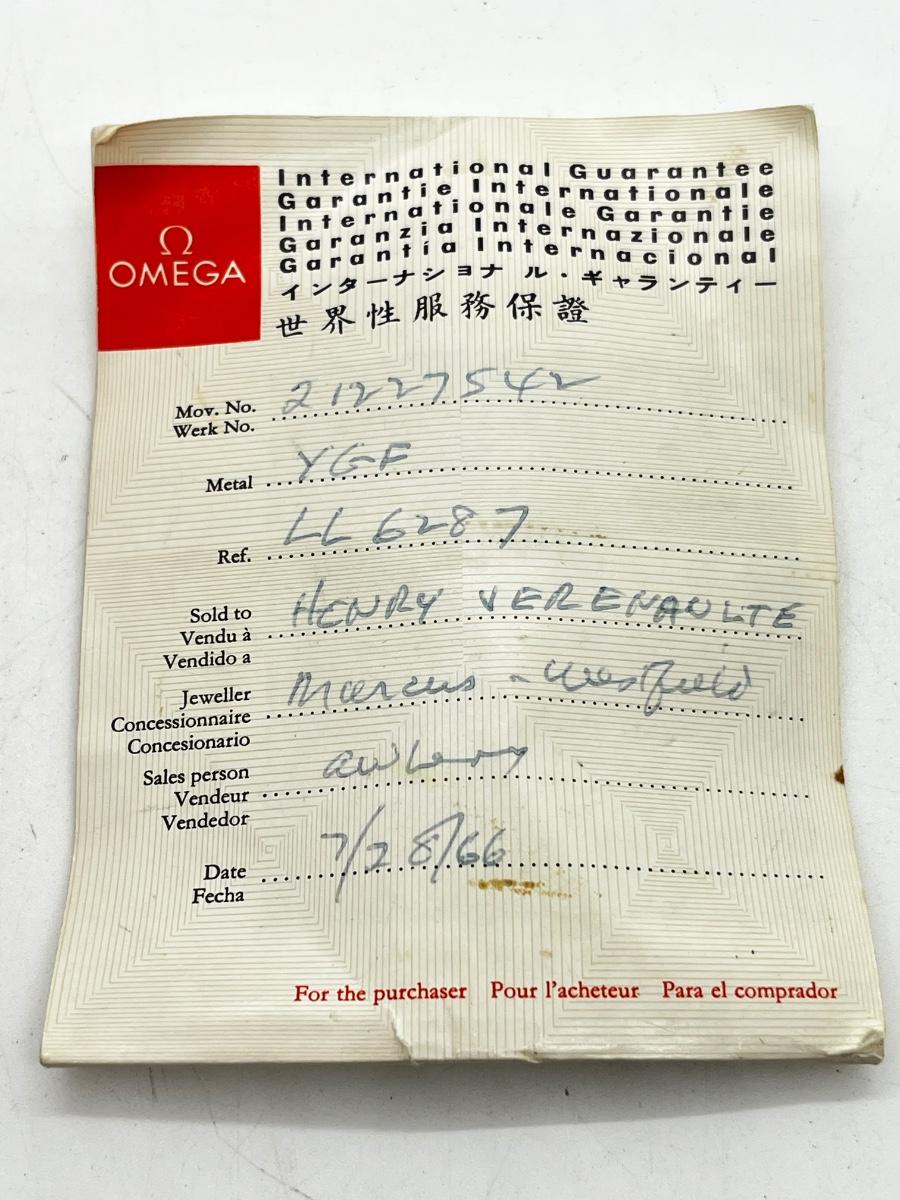 Ω
OMEGA
International Guarantee
Garantie Internationale
Internationale Garantie
Garanzia Internazionale
Garantía Internacional
インターナショナル・ギャランティー
世界性服務保證
Mov. No. 21227542
Werk No.
Metal YGF
Ref. LL 6287
Sold to HENRY VERENAULTE
Vendu à
Vendido a
Jeweller Marcus - Westfield
Concessionnaire
Concesionario
Sales person
Vendeur
Vendedor
Date 7/28/66
Fecha
For the purchaser Pour l'acheteur Para el comprador